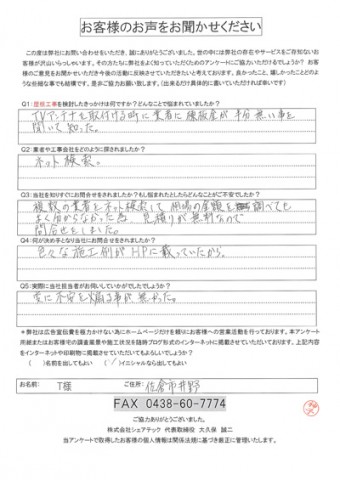 お客様のお声をお聞かせください
この度は弊社にお問い合わせをいただき、誠にありがとうございました。世の中には弊社の存在やサービスをご存知ないお
客様が沢山いらっしゃいます。その方たちに弊社をよく知っていただくためのアンケートにご協力いただけるでしょうか？お
客様のご意見をお聞かせいただき今後の活動に反映させていただきたいと考えております。良かったこと、嬉しかったことどの
ような些細な事でも結構です、是非ご協力お願い致します。(出来るだけ具体的に書いていただければ幸いです)
Q1:屋根工事を検討したきっかけは何ですか？どんなことで悩まれていましたか？
TVアンテナを取付ける時に業者に棟板金が半分無い事を
聞いて知った。
Q2:業者や工事会社をどのように探されましたか？
ネット検索。
Q3:当社を知りすぐにお問合せをされましたか？もし悩まれたとしたらどんなことがご不安でしたか？
複数の業者をネット検索して相場の金額を調べても
よく分からなかった為、見積りが無料なので
問合せをしました。
Q4:何が決め手となり当社にお問合せをされましたか？
色々な施工例がHPに載っていたから。
Q5:実際に当社担当者がお伺いしていかがでしたか？
変に不安を煽る事が無かった。
＊弊社は広告宣伝費を極力かけない為にホームページだけを頼りにお客様への営業活動を行っております。本アンケート
用紙またはお客様宅の調査風景や施工状況を随時ブログ形式のインターネットに掲載させていただいております。上記内容
をインターネットや印刷物に掲載させていただいてもよろしいでしょうか？
( )名前を出してもよい ( )イニシャルなら出してもよい
お名前: T様 ご住所: 佐倉市井野
FAX 0438-60-7774
ご協力ありがとうございました。
株式会社シェアテック 代表取締役 大久保 誠二
当アンケートで取得したお客様の個人情報は関係法規に基づき厳正に管理いたします。